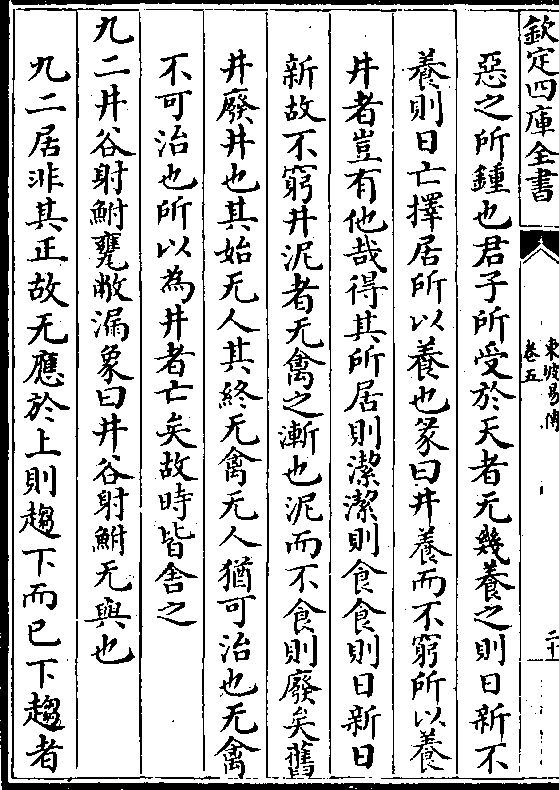 欽定四庫全書
東坡易傳
卷五
二十
惡之所鍾也君子所受於天者无幾養之則日新不
養則日亡擇居所以養也彖曰井養而不窮所以養
井者豈有他哉得其所居則潔潔則食食則日新日
新故不窮井泥者无禽之漸也泥而不食則廢矣舊
井廢井也其始无人其終无禽无人猶可治也无禽
不可治也所以為井者亡矣故時皆舍之
九二井谷射鮒甕敝漏象曰井谷射鮒无與也
九二居非其正故无應於上則趨下而已下趨者